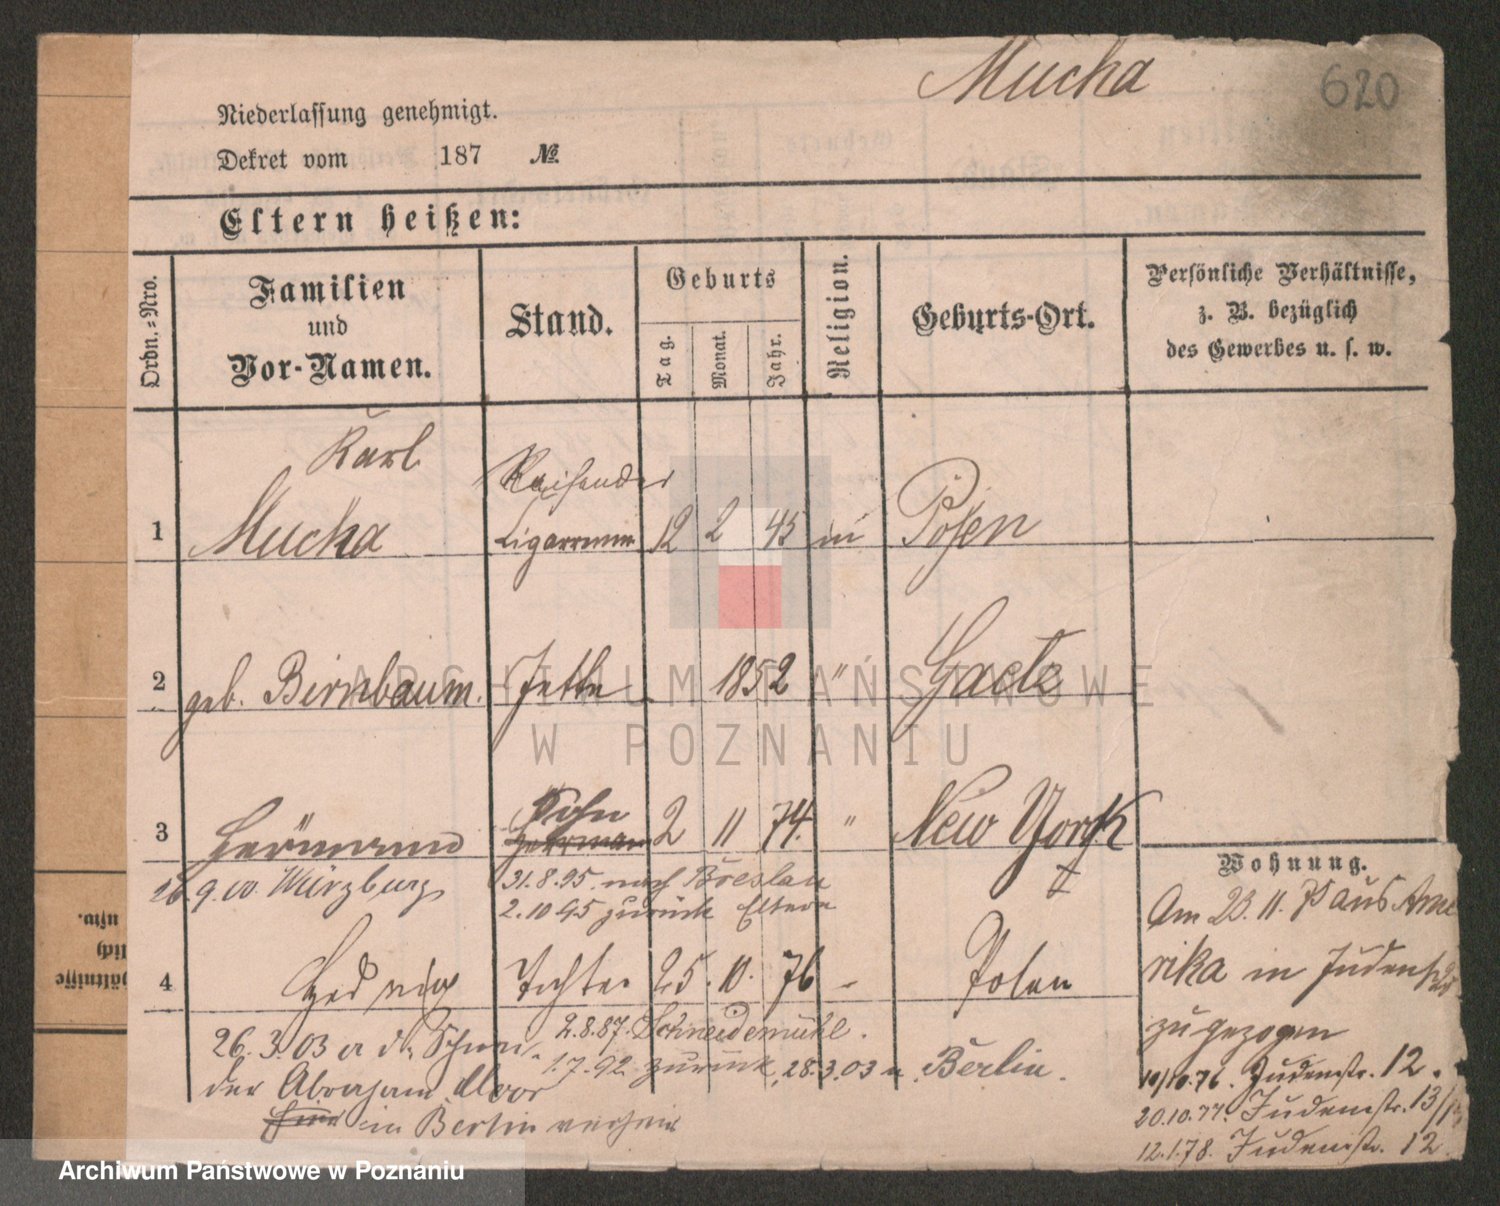 Mucha
620
Niederlassung genehmigt.
Dekret vom 187 №
Eltern heißen:
Ordn.=Nro.
Familien und Vor-Namen.
Stand.
Geburts
Tag.
Monat.
Jahr.
Religion.
Geburts-Ort.
Persönliche Verhältnisse,
z. B. bezüglich
des Gewerbes u. s. w.
Karl
Reisender
1 Mucha 12 2 45 Posen
2 geb. Birnbaum. Jette 1852 " Gaetz
Sohn
3 Hermann 2 11 74. " New York
26.9.00. Würzburg
31.8.95. nach Breslau
2.10 95 zurück Eltern
4 Hedwig Tochter 25. 10. 76 Posen
2.8.87. Schneidemühl.
26.3.03
1.7.92 zurück, 28.3.03 n. Berlin.
der Abraham
in Berlin
Wohnung.
Am 23. 11. aus Ame
rika in
zugezogen
10/10.76. Judenstr. 12.
20.10.77. Judenstr. 13/
12.1.78. Judenstr. 12
ARCHIWUM PAŃSTWOWE
W POZNANIU
Archiwum Państwowe w Poznaniu